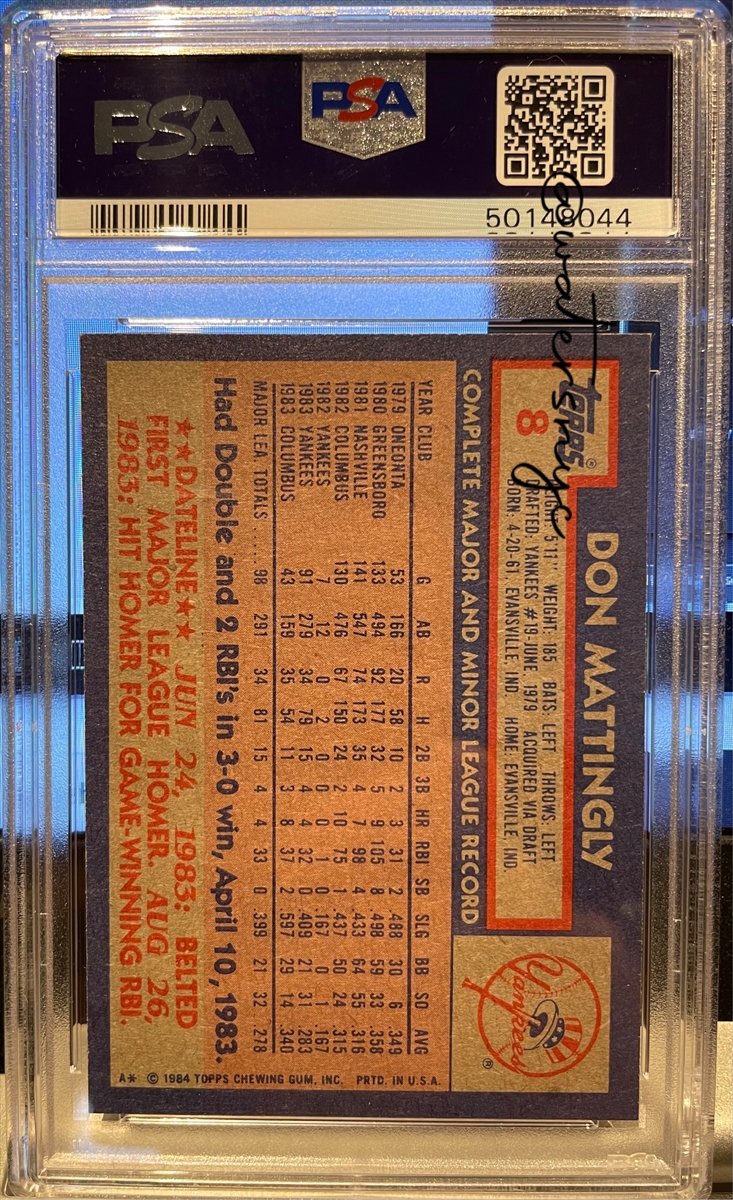 PSA
PSA
@watersnyc
Topps®
8
DON MATTINGLY
5'11" WEIGHT: 185 BATS: LEFT THROWS: LEFT
YANKEES #19-JUNE, 1979 ACQUIRED VIA DRAFT
4-20-61, EVANSVILLE, IND. HOME: EVANSVILLE, IND.
COMPLETE MAJOR AND MINOR LEAGUE RECORD
Yankees ®
YEAR CLUB G AB R H 2B 3B HR RBI SB SLG BB SO AVG
1979 ONEONTA 53 166 20 58 10 2 3 31 2 .488 30 6 .349
1980 GREENSBORO 133 494 92 177 32 5 9 105 8 .498 59 33 .358
1981 NASHVILLE 141 547 74 173 35 4 7 98 4 .433 64 55 .316
1982 COLUMBUS 130 476 67 150 24 2 10 75 1 .437 50 24 .315
1982 YANKEES 7 12 0 2 0 0 0 1 0 .167 0 1 .167
1983 YANKEES 91 279 34 79 15 4 4 32 0 .409 21 31 .283
1983 COLUMBUS 43 159 35 54 11 3 8 37 2 .597 29 14 .340
MAJOR LEA. TOTALS ..... 98 291 34 81 15 4 4 33 0 .399 21 32 .278
Had Double and 2 RBI's in 3-0 win, April 10, 1983.
★★DATELINE★★ JUN 24, 1983: BELTED
FIRST MAJOR LEAGUE HOMER. AUG 26,
1983: HIT HOMER FOR GAME-WINNING RBI.
A* © 1984 TOPPS CHEWING GUM, INC. PRTD. IN U.S.A.